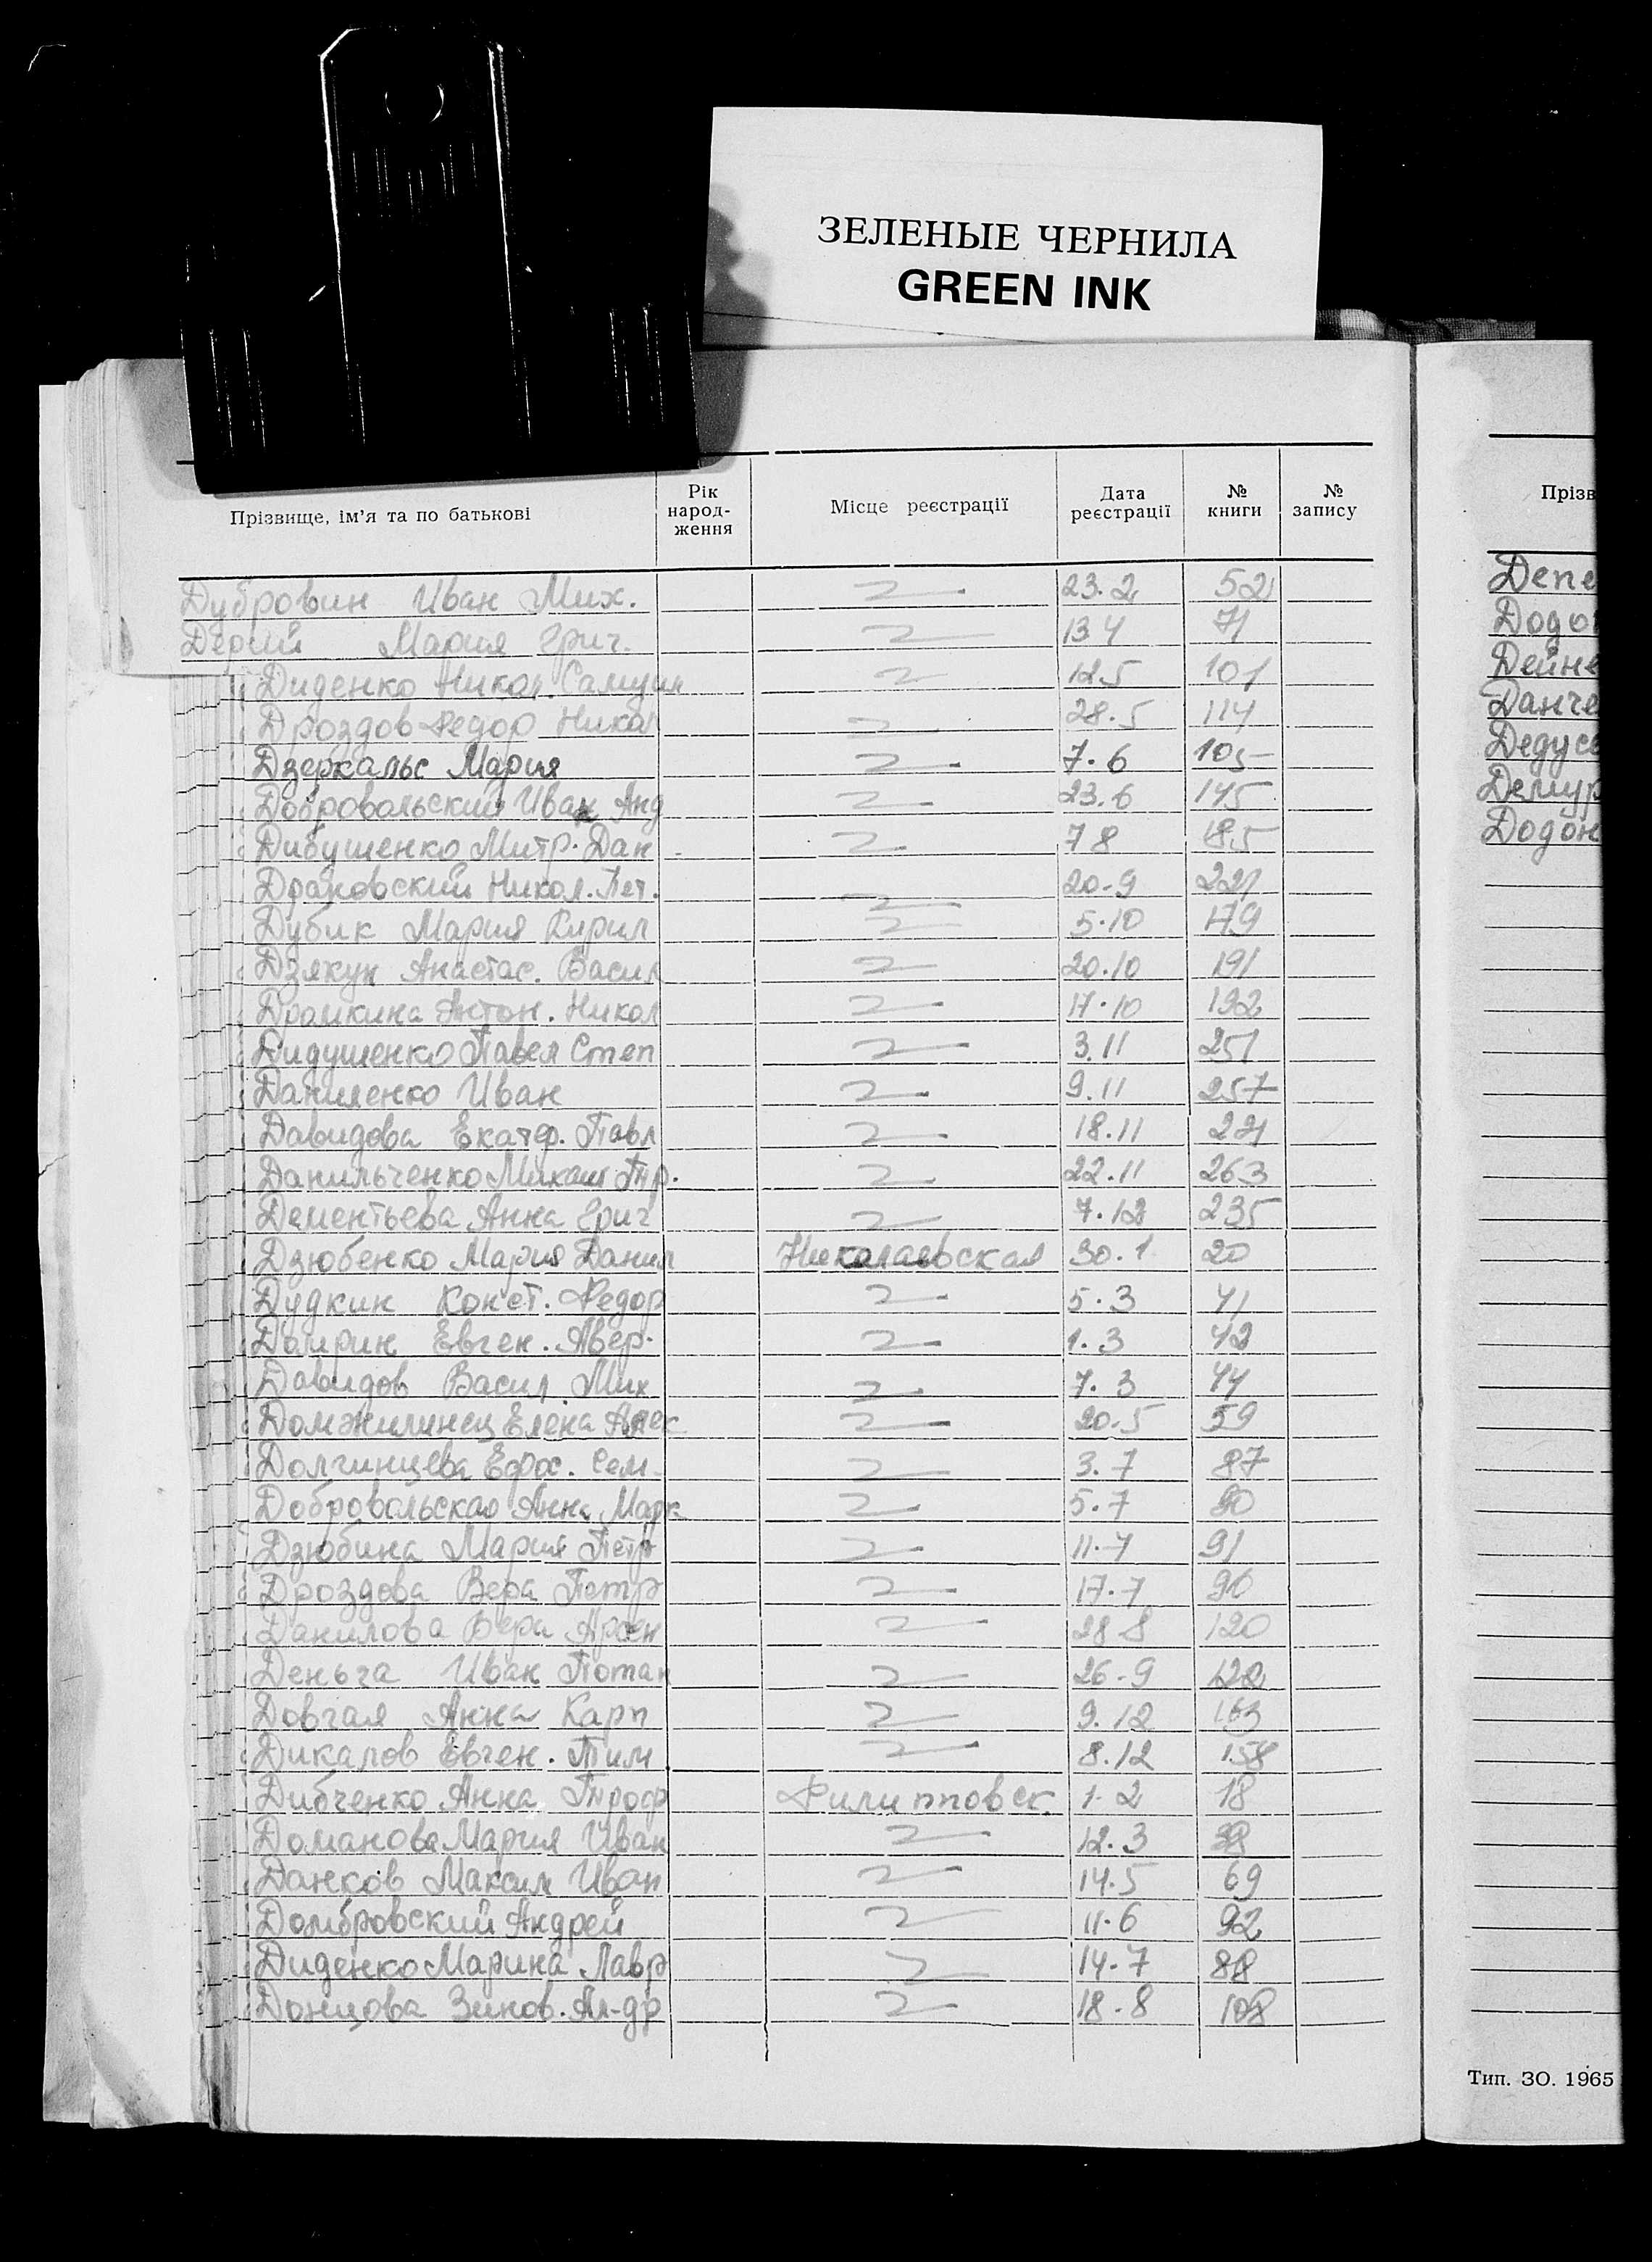 ЗЕЛЕНЫЕ ЧЕРНИЛА
GREEN INK
Прізвище, ім'я та по батькові Рік народ-ження Місце реєстрації Дата реєстрації № книги № запису
Дубровин Иван Мих. 23.2 52
Мария Григ. 13 4 71
Диденко Никол. Самуил 12 5 101
Дроздов Федор Никол 28.5 114
Дзеркальс Мария 7.6 105
Добровольский Иван Анд 23.6 145
Дибушенко Митр. Дан 7 8 185
Никол. Пет. 20-9 221
Дубик Мария Кирил 5.10 179
Дзякун Анастас. Васил 20.10 191
Дромкина Антон. Никол 17.10 192
Дидушенко Павел Степ 3.11 251
Даниленко Иван 9.11 257
Давидова Екатер. Павл 18.11 221
Данильченко Михаил Тр. 22.11 263
Дементьева Анна Григ 7.12 235
Дзюбенко Мария Данил Николаевская 30.1 20
Дудкин Конст. Федор 5.3 41
Евген. Авер. 1.3 42
Давидов Васил Мих 7.3 44
Домжилинец Елена Алек 20.5 59
Долгинцева Ефр. Сем. 3.7 87
Добровольская Анна Марк 5.7 90
Дзюбина Мария Петр 11.7 91
Дроздова Вера Петр 17.7 96
Данилова Вера Арсен 28 8 120
Деньга Иван Потап 26-9 122
Довгая Анна Карп 9.12 163
Дикалов Евген. Тим 8.12 158
Дибченко Анна Троф Филипповск. 1.2 18
Доманова Мария Иван 12.3 38
Данков Максим Иван 14.5 69
Домбровский Андрей 11.6 92
Диденко Марина Лавр 14.7 88
Донцова Зинов. Ал-др 18.8 108
Прізв
Депе
Додо
Дейне
Данче
Дедусе
Демур
Додон
Тип. ЗО. 1965